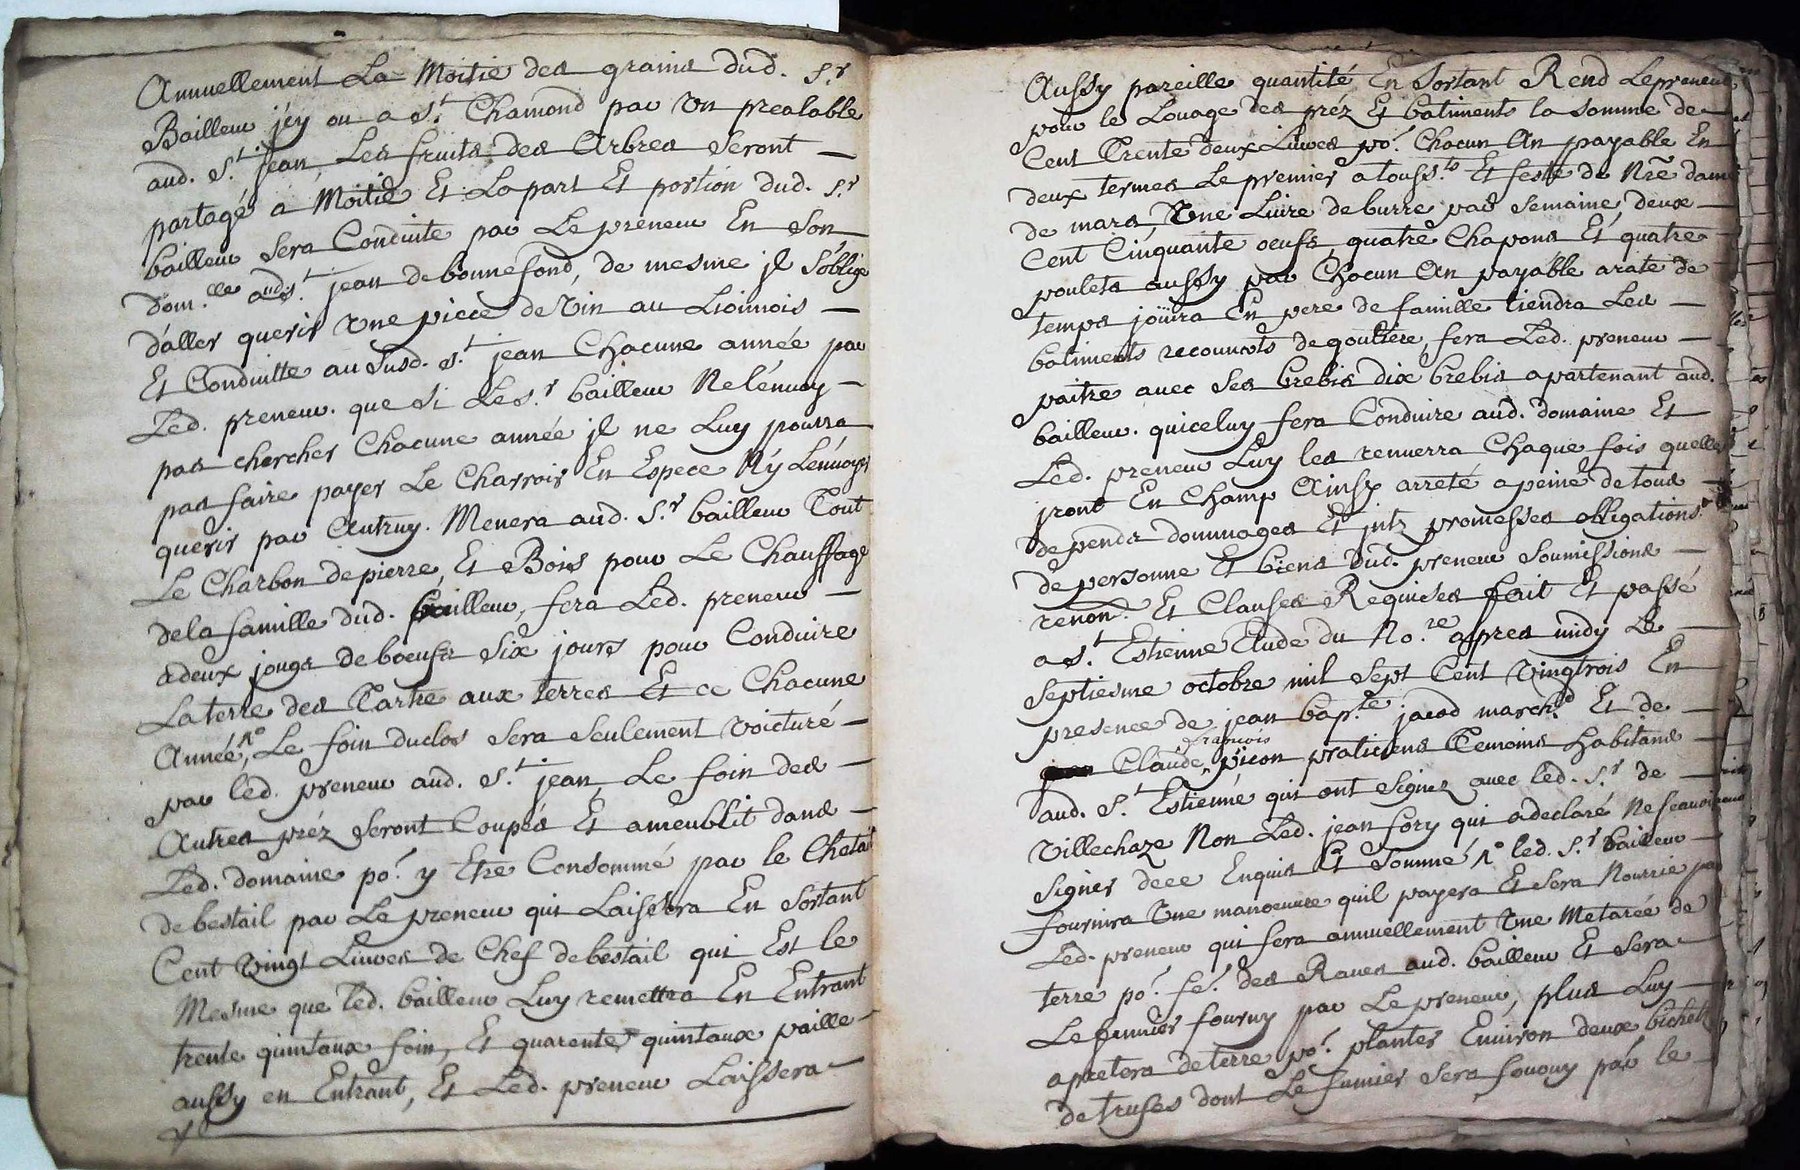 Annuellement La Moitié des grains dud. S.r
Bailleur jcy ou a S.t Chamond par Un prealable
aud. S.t jean, Les fruits des Arbres Seront
partagé a Moitié Et La part Et portion dud. S.r
bailleur Sera Conduite par Le preneur En Son
dom.lle aud. S.t jean de bonnefond, de mesme jl S'oblige
d'aller querir Une piece de Vin au Lionnois
Et Conduitte au Susd. S.t jean Chacune année par
Led. preneur. que Si Le S.r bailleur Ne l'énuoy
pas chercher Chacune année jl ne Luy pourra
pas faire payer Le Charrois En Espece Ny L'énuoyer
querir par Autruy. Menera aud. S.r bailleur Tout
Le Charbon de pierre, Et Bois pour Le Chauffage
de la famille dud. bailleur, fera Led. preneur
a deux jougs de boeufs Six jours pour Conduire
La terre des Tartre aux terres Et ce Chacune
Année, No Le foin du clos Sera Seulement Voicturé
par led. preneur aud. S.t jean, Le foin des
Autres préz Seront Coupés Et ameublit dans
Led. domaine po.r y Etre Consommé par le Chetail
de bestail par Le preneur qui Laissera En Sortant
Cent Vingt Liures de Chef de bestail qui Est le
Mesme que led. bailleur Luy remettra En Entrant
trente quintaux foin, Et quarente quintaux paille
aussy en Entrant, Et Led. preneur Laissera
Aussy pareille quantité En Sortant Rend Le preneur
pour le Louage des préz Et batiments la Somme de
Cent Trente deux Liures po.r Chacun An payable En
deux termes Le premier a touss.ts Et feste de Nrē dame
de mars, Une Liure de burre par Semaine deux
Cent Cinquante oeufs quatre Chapons Et quatre
poulets aussy par Chacun An payable arate de
temps joüira En pere de famille tiendra Les
batiments recouuerts de goutiere, fera Led. preneur
paitre auec Ses brebis dix brebis apartenant aud.
bailleur. qui celuy fera Conduire aud. domaine Et
Led. preneur Luy les renuerra Chaque fois quelles
jront En Champ Ainsy arreté a peine de tous
depends dommages Et jntz promesses obligations
de personne Et biens dud. preneur Soumissions
renon.on Et Clauses Requises fait Et passé
a S.t Estienne Etude du No.re apres midy Le
Septiesme octobre mil Sept Cent Vingtrois En
presence de jean bap.te jacod march.d Et de
Claude françois picon praticiens Temoins habitans
aud. S.t Estienne qui ont Signez auec led. S.r de
Villechaze Non Led. jean fory qui a declaré Ne Scauoir
Signer dece Enquis Et Sommé No led. S.r bailleur
fournira Une manoeuure quil payera Et Sera Nourrie par
Led. preneur qui fera annuellement Une Metarée de
terre po.r Se.r des Raues aud. bailleur Et Sera
Le fumier fourny par Le preneur, plus Luy
apretera de terre po.r planter Enuiron deux bichets
de trufes dont Le fumier Sera fourny par le